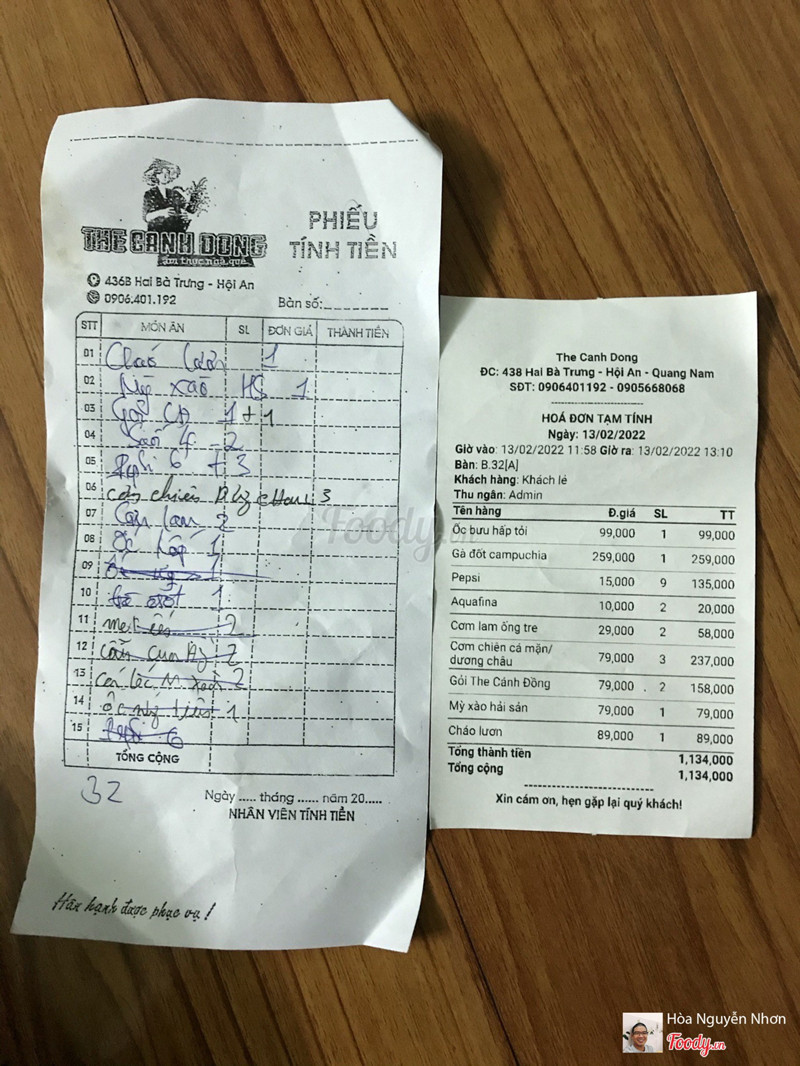 THE CANH DONG
ẩm thực nhà quê
PHIẾU
TÍNH TIỀN
436B Hai Bà Trưng - Hội An
0906.401.192
Bàn số:
STT MÓN ĂN SL ĐƠN GIÁ THÀNH TIỀN
01 Cháo lươn 1
02 Mỳ xào HS 1
03 Gỏi CĐ 1 + 1
04 2
05 Pepsi 6 + 3
06 cơm chiên 3
07 Cơm lam 2
08 Ốc hấp 1
09
10 Gà đốt 1
11 2
12 2
13 2
14 1
15 Pepsi 6
TỔNG CỘNG
32
Ngày ..... tháng ...... năm 20.....
NHÂN VIÊN TÍNH TIỀN
Hân hạnh được phục vụ !
The Canh Dong
ĐC: 438 Hai Bà Trưng - Hội An - Quang Nam
SĐT: 0906401192 - 0905668068
HOÁ ĐƠN TẠM TÍNH
Ngày: 13/02/2022
Giờ vào: 13/02/2022 11:58 Giờ ra: 13/02/2022 13:10
Bàn: B.32[A]
Khách hàng: Khách lẻ
Thu ngân: Admin
Tên hàng Đ.giá SL TT
Ốc bưu hấp tỏi 99,000 1 99,000
Gà đốt campuchia 259,000 1 259,000
Pepsi 15,000 9 135,000
Aquafina 10,000 2 20,000
Cơm lam ống tre 29,000 2 58,000
Cơm chiên cá mặn/ 79,000 3 237,000
dương châu
Gỏi The Cánh Đồng 79,000 2 158,000
Mỳ xào hải sản 79,000 1 79,000
Cháo lươn 89,000 1 89,000
Tổng thành tiền 1,134,000
Tổng cộng 1,134,000
Xin cám ơn, hẹn gặp lại quý khách!
Foody.vn
Hòa Nguyễn Nhơn
Foody.vn